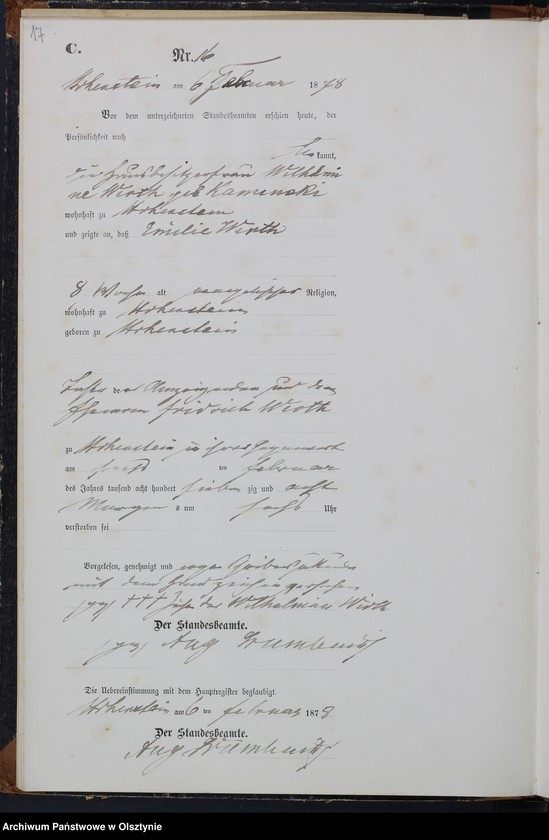 17
C.
Nr. 16
Hohenstein am 6 Februar 1878
Vor dem unterzeichneten Standesbeamten erschien heute, der
Persönlichkeit nach
kannt,
die Hausbesitzerfrau Wilhelmi
ne Wirth geb Kaminski
wohnhaft zu Hohenstein
und zeigte an, daß Emilie Wirth
8 Wochen alt evangelischer Religion,
wohnhaft zu Hohenstein
geboren zu Hohenstein
Tochter der Anzeigenden und deren
Ehemann Fridrich Wirth
zu Hohenstein in ihrer Gegenwart
am sechs ten Februar
des Jahres tausend acht hundert sieben zig und acht
Morgens um sechs Uhr
verstorben sei
Vorgelesen, genehmigt und wegen Schreibunkunde
mit dem Handzeichen versehen
+++ der Wilhelmine Wirth
Der Standesbeamte.
(gez) Aug
Die Uebereinstimmung mit dem Hauptregister beglaubigt.
Hohenstein am 6 ten Februar 1878
Der Standesbeamte.
Aug
Archiwum Państwowe w Olsztynie